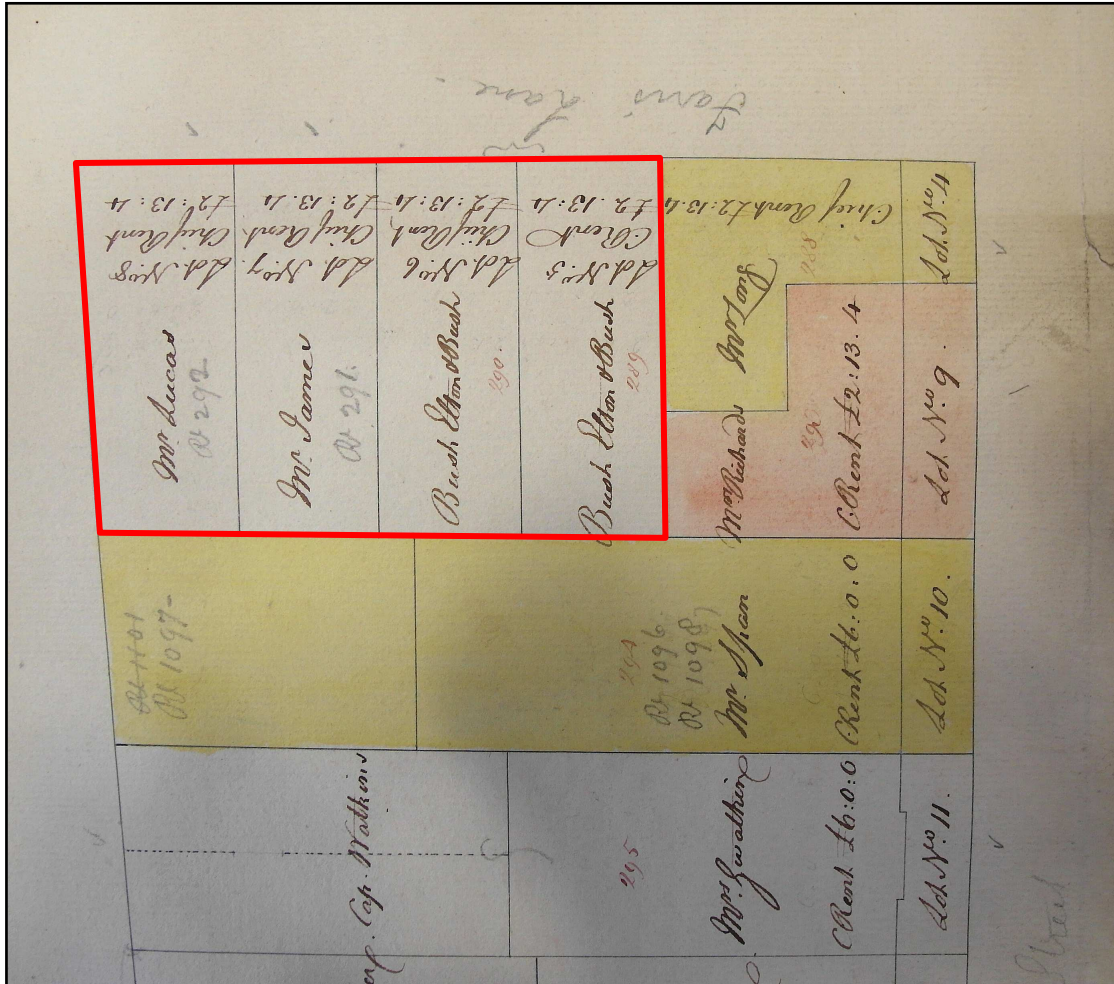 Farr's Lane
Lot. No. 8
Chief Rent
£2:13:4
Mr. Lucas
Rl 292
Lot. No. 7
Chief Rent
£2:13.4
Mr. James
Rl 291
Lot No. 6
Chief Rent
£2:13:4
Bush Elton & Bush
290.
Lot No. 5
C. Rent
£2.13:4
Bush Elton & Bush
289
Chief Rent £2:13:4
288
Lot No. 4
Mrs Richard
C. Rent £2:13.4
Lot. No. 9.
Rl 1101
Rl 1097
294
Rl 1096
Rl 1098
Mr. Span
C Rent £6:0:0
Lot No. 10.
Cap. Watkins
295
Mrs Gwatkins
C Rent £6:0:0
Lot No. 11.
Street